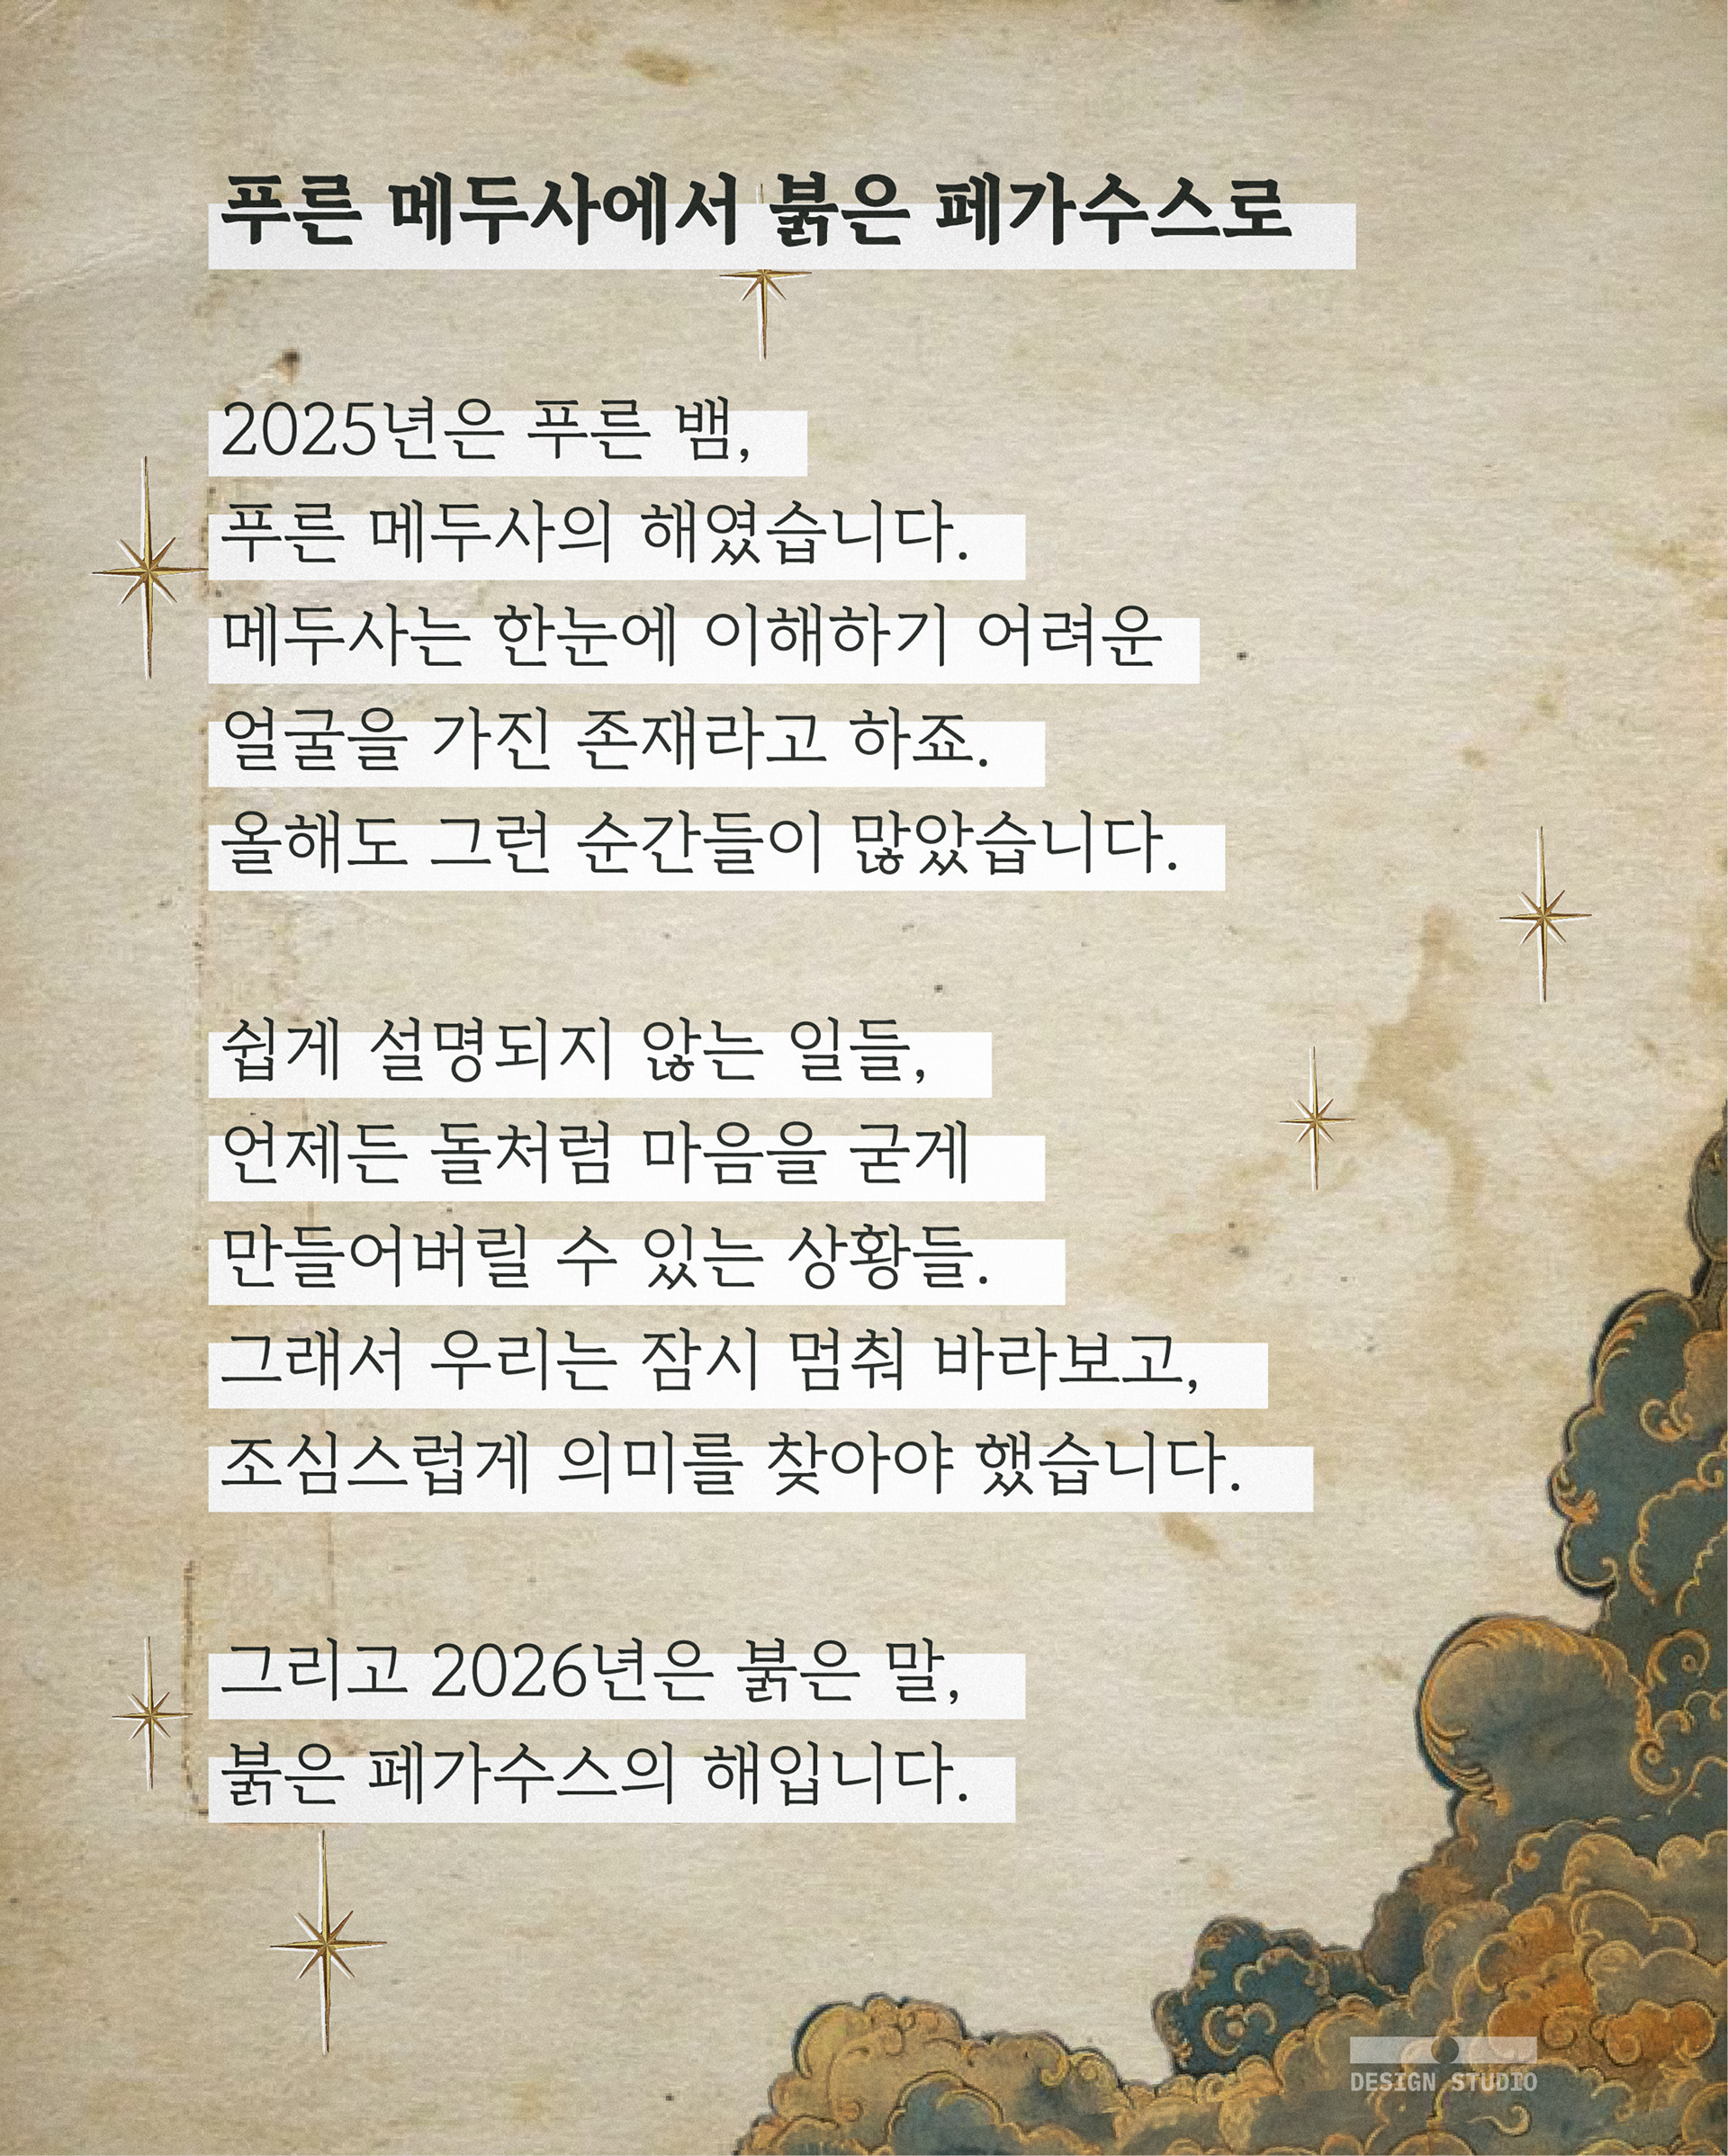 푸른 메두사에서 붉은 페가수스로
2025년은 푸른 뱀,
푸른 메두사의 해였습니다.
메두사는 한눈에 이해하기 어려운
얼굴을 가진 존재라고 하죠.
올해도 그런 순간들이 많았습니다.
쉽게 설명되지 않는 일들,
언제든 돌처럼 마음을 굳게
만들어버릴 수 있는 상황들.
그래서 우리는 잠시 멈춰 바라보고,
조심스럽게 의미를 찾아야 했습니다.
그리고 2026년은 붉은 말,
붉은 페가수스의 해입니다.
DESIGN STUDIO